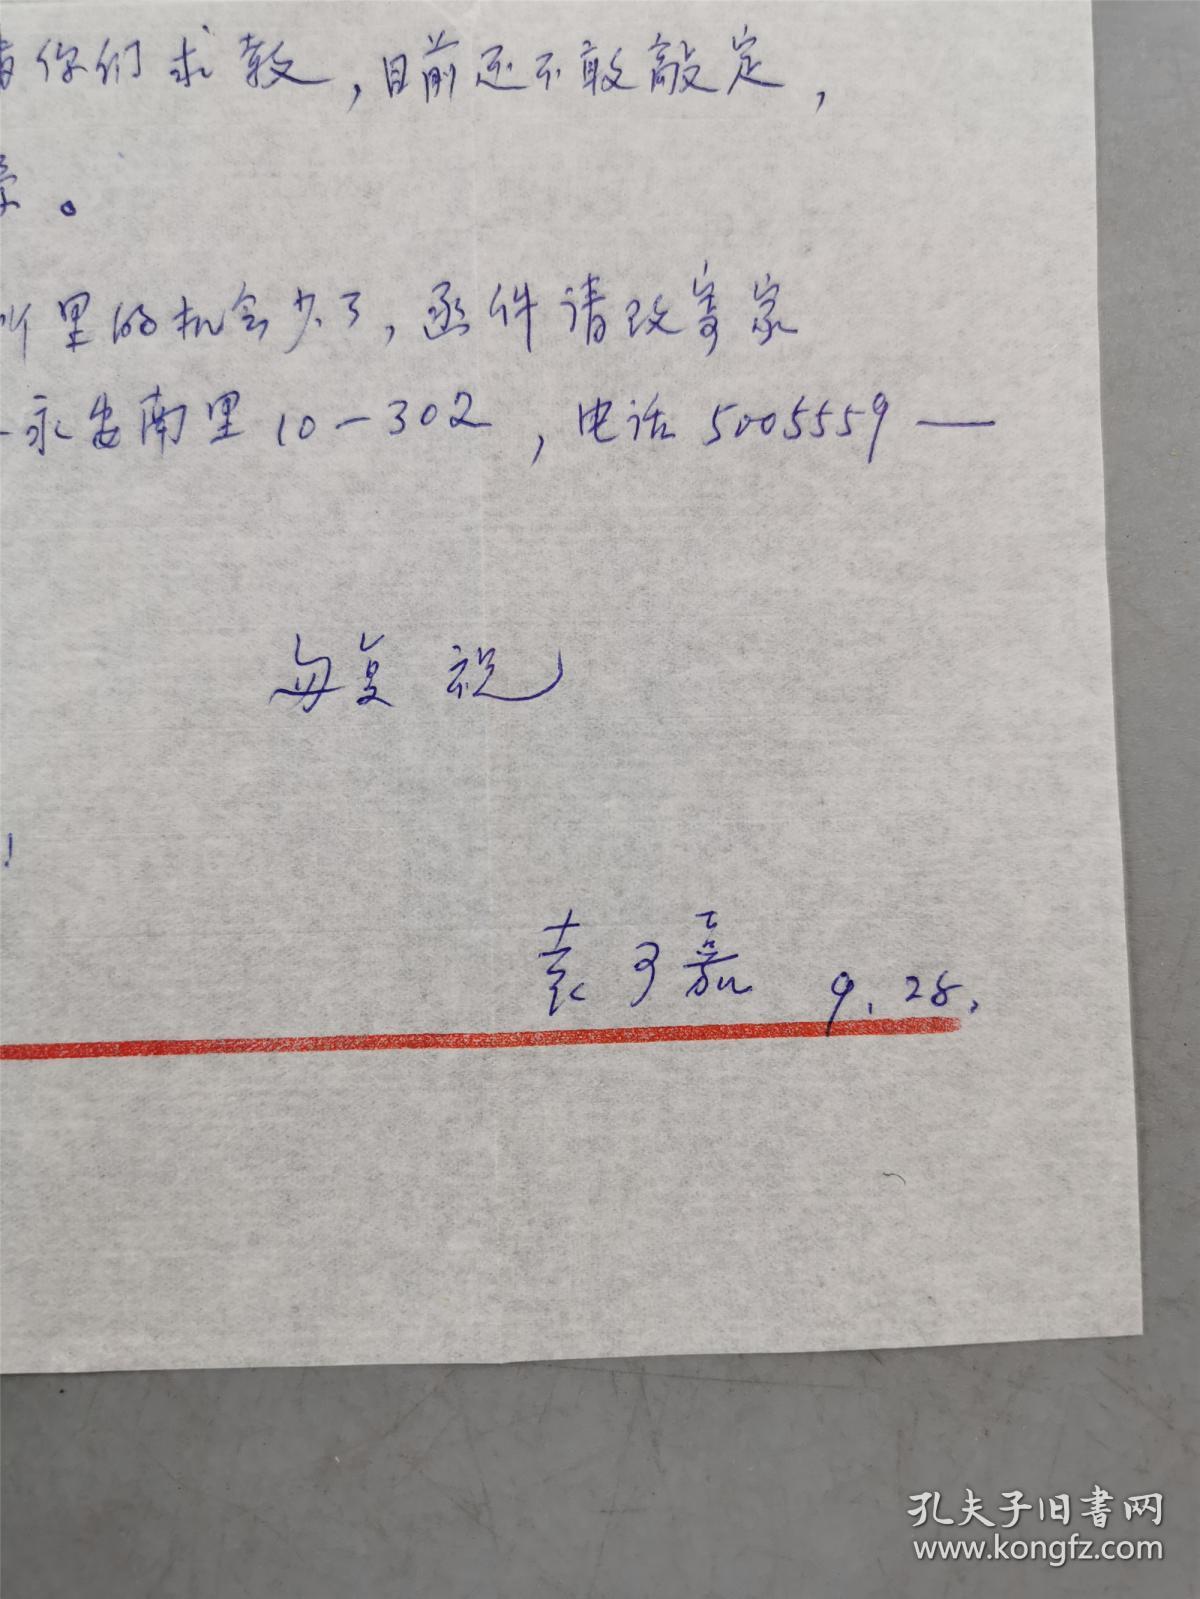 你们求教，目前还不敢敲定，
。
所里的机会少了，函件请改寄家
永安南里10-302，电话5005559—
匆复 祝
！
袁可嘉 9.28.
孔夫子旧书网
www.kongfz.com